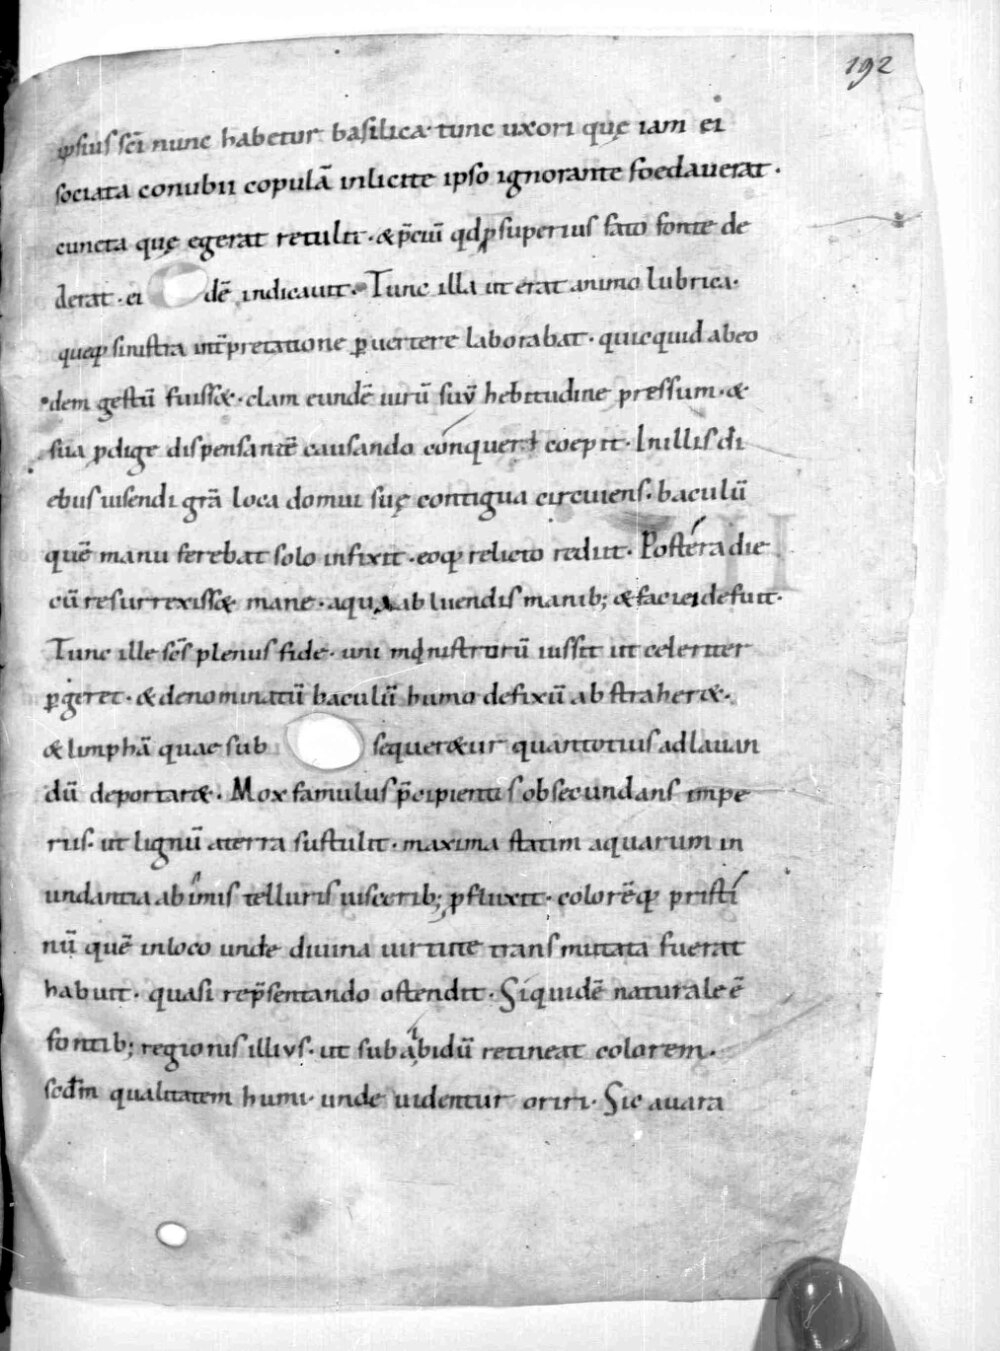 192
ipsius sc̄i nunc habetur basilica· tunc uxori quę iam ei
sociata conubii copulā inlicite ipso ignorante foedauerat·
cuncta quę egerat retulit·&p̄ciū qđ p̱ superius fato fonte de
derat·ei dē indicauit·Tunc illa ut erat animo lubrica·
queq; sinistra int̄pretatione ꝑuertere laborabat·quicquid ab eo
dem gestū fuiss&·clam eundē uirū suū hebitudine pressum·&
sua ꝓdige dispensantē causando conqueri coepit·In illis di
ebus uisendi grā loca domui suę contigua circuiens·baculū
quē manu ferebat solo infixit·eoq; relicto rediit·Postera die
cū resurrexiss& mane·aqua abluendis manib;&faciei defuit·
Tunc ille sc̄s plenus fide·uni ministrorū iussit ut celeriter
ꝑgeret·&denominatū baculū humo defixū abstraher&·
&limphā quae sub sequer&ur quantotius ad lauan
dū deportar&·Mox famulus p̄cipientis obsecundans impe
riis·ut lignū a terra sustulit·maxima statim aquarum in
undantia ab imis telluris uiscerib; ꝓfluxit·colorēq; pristi
nū quē in loco unde diuina uirtute transmutata fuerat
habuit·quasi rep̄sentando ostendit·Siquidē naturale ē
fontib; regionis illius·ut subalbidū retineat colorem·
scđm qualitatem humi·unde uidentur oriri·Sic auara